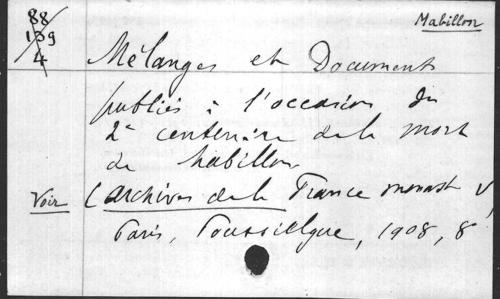 88
139
4
Mabillon
Mélanges et Documents
publiés à l'occasion du
2e centenaire de la mort
de Mabillon
Voir (Archives de la France monast V,
Paris, Poussielgue, 1908, 8°